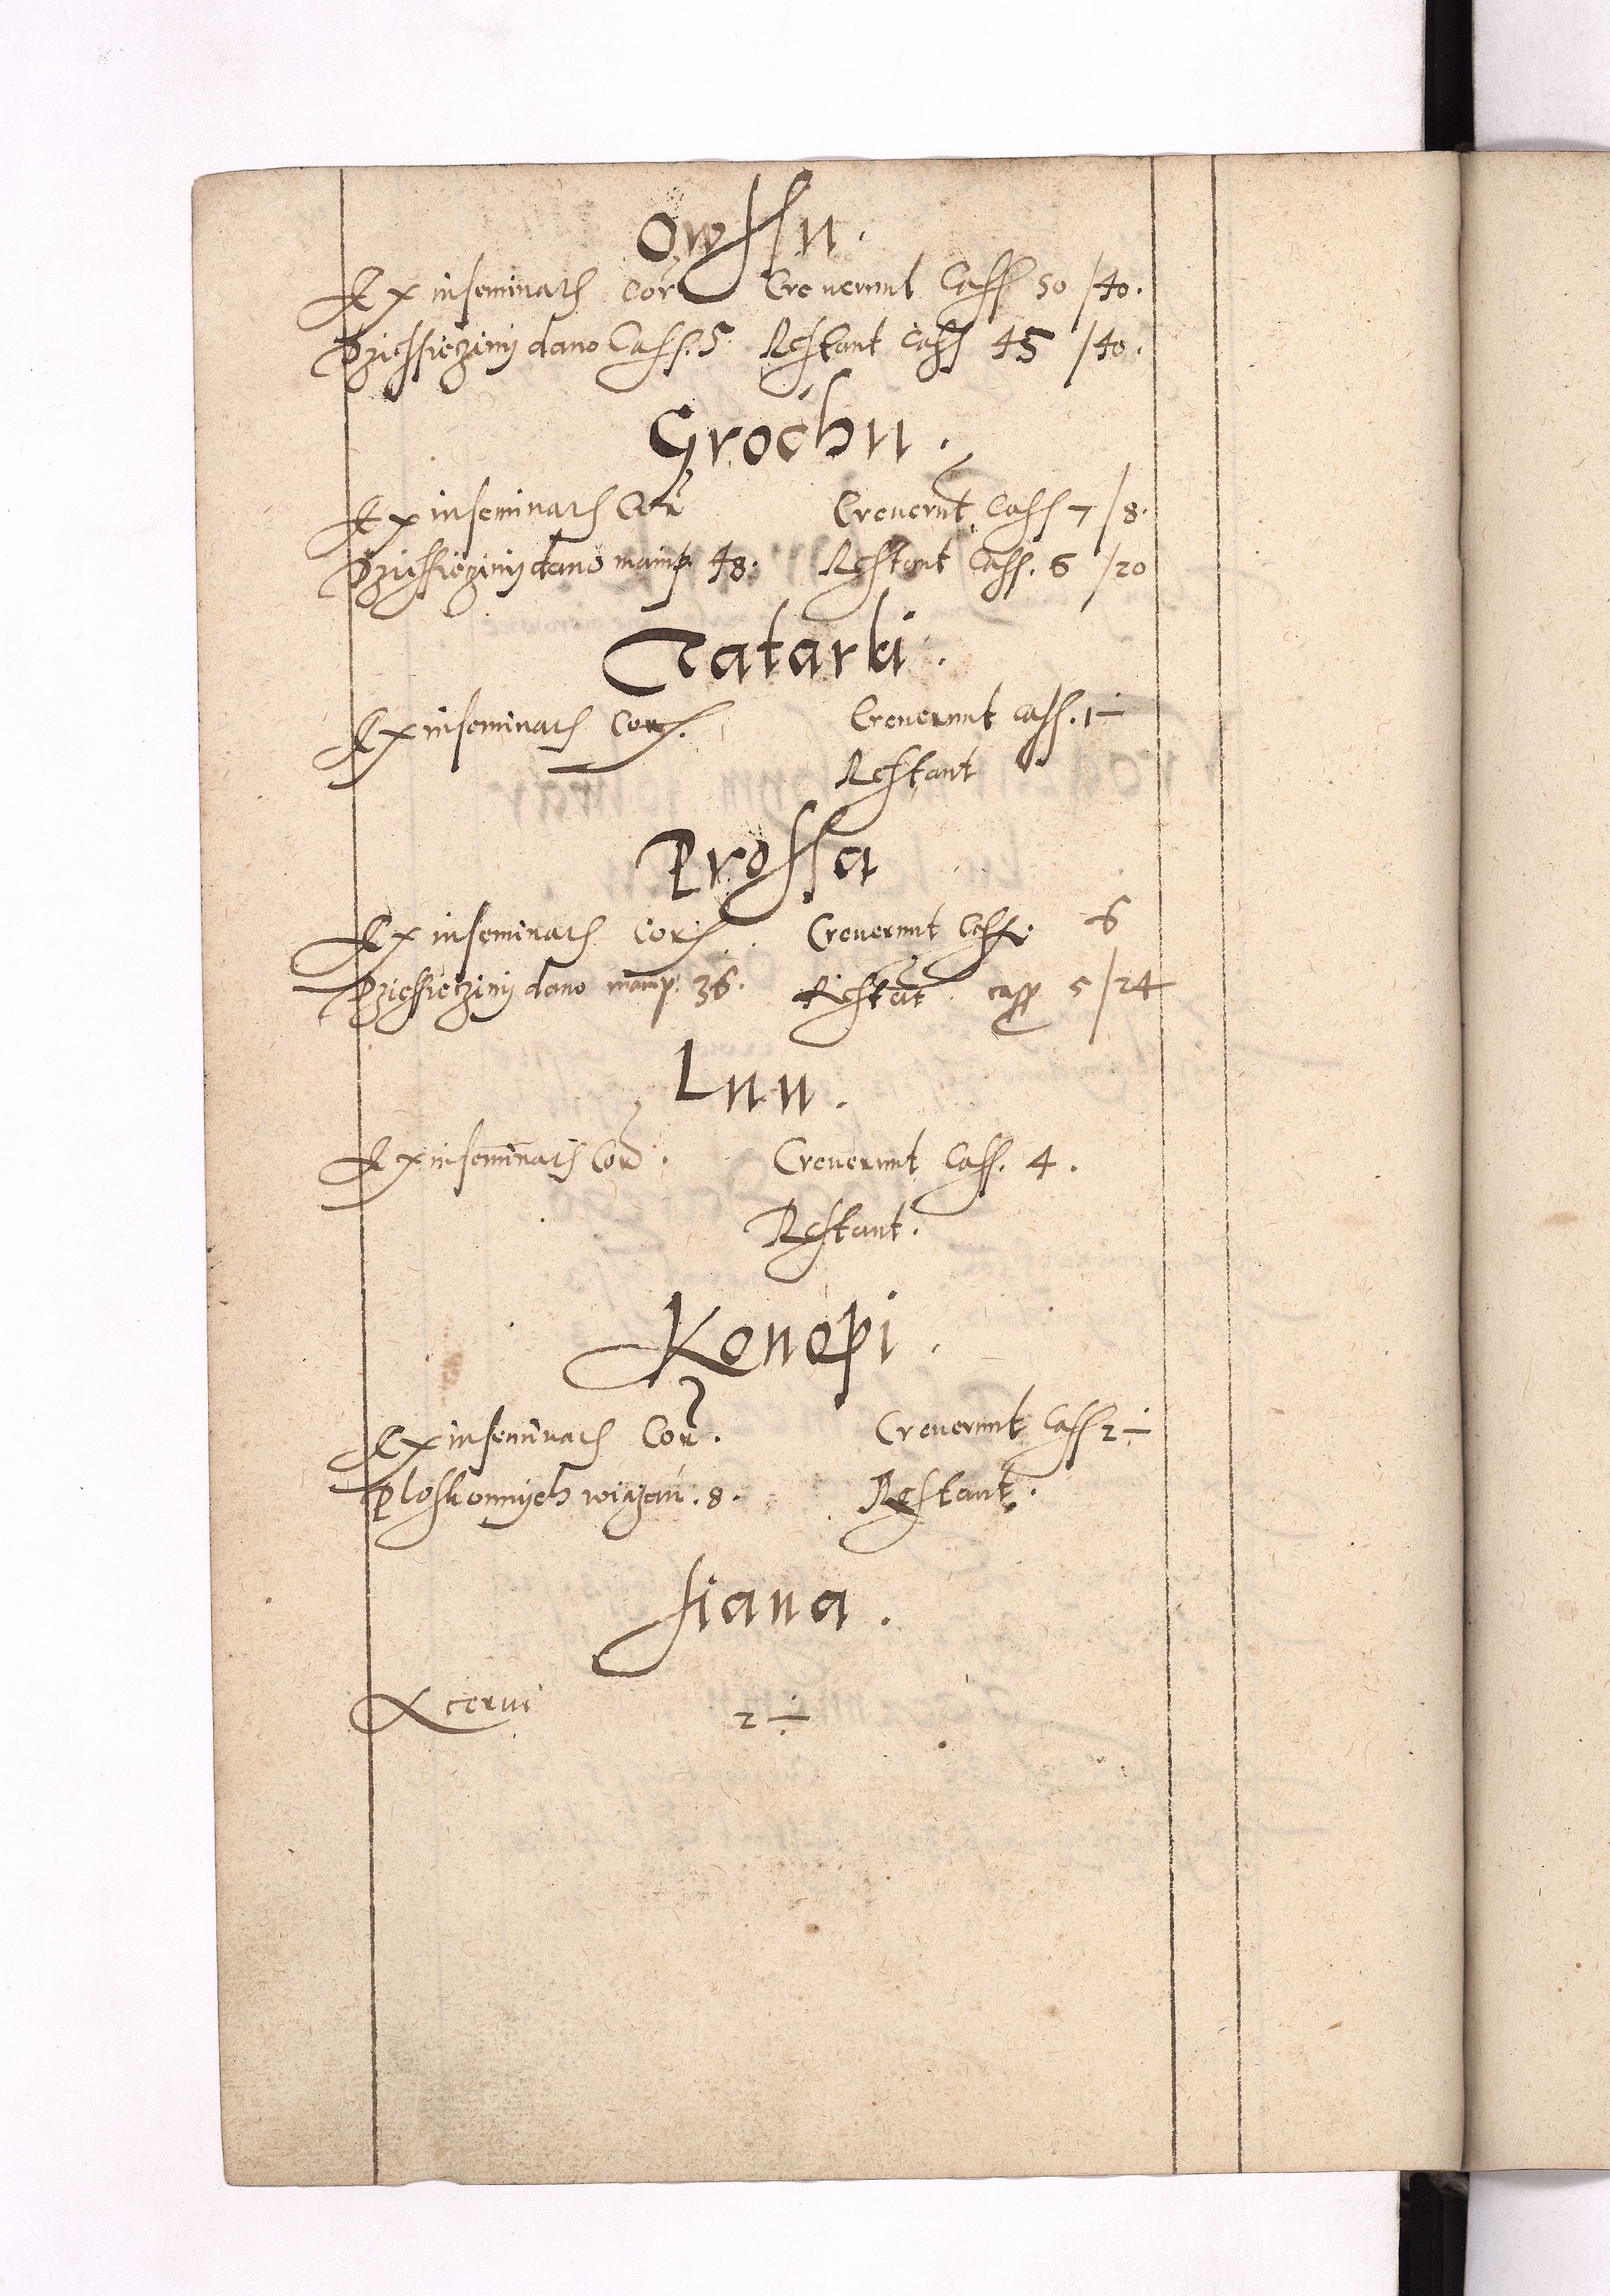 Owssu.
Ex inseminatis Cor Creuerunt Cass 50 /40.
Dziessięciny dano Cass. 5 Restant Cass 45 /40.
Grochu.
Ex inseminatis Cor Creuerunt Cass 7 /8.
Dziessięciny dano manip. 48. Restant Cass. 6 /20
Tatarki.
Ex inseminatis Cor. Creuerunt Cass. 1 ÷
Restant
Prossa
Ex inseminatis Cor Creuerunt Cass. 6
Dziessięciny dano manip. 36. Restat cass 5 /24
Lnu.
Ex inseminatis Cor. Creuerunt Cass. 4.
Restant.
Konopi.
Ex inseminatis Cor. Creuerunt Cass 2 ÷
Ploskonnych wiązań. 8. Restant.
siana.
Acerui 2 ÷